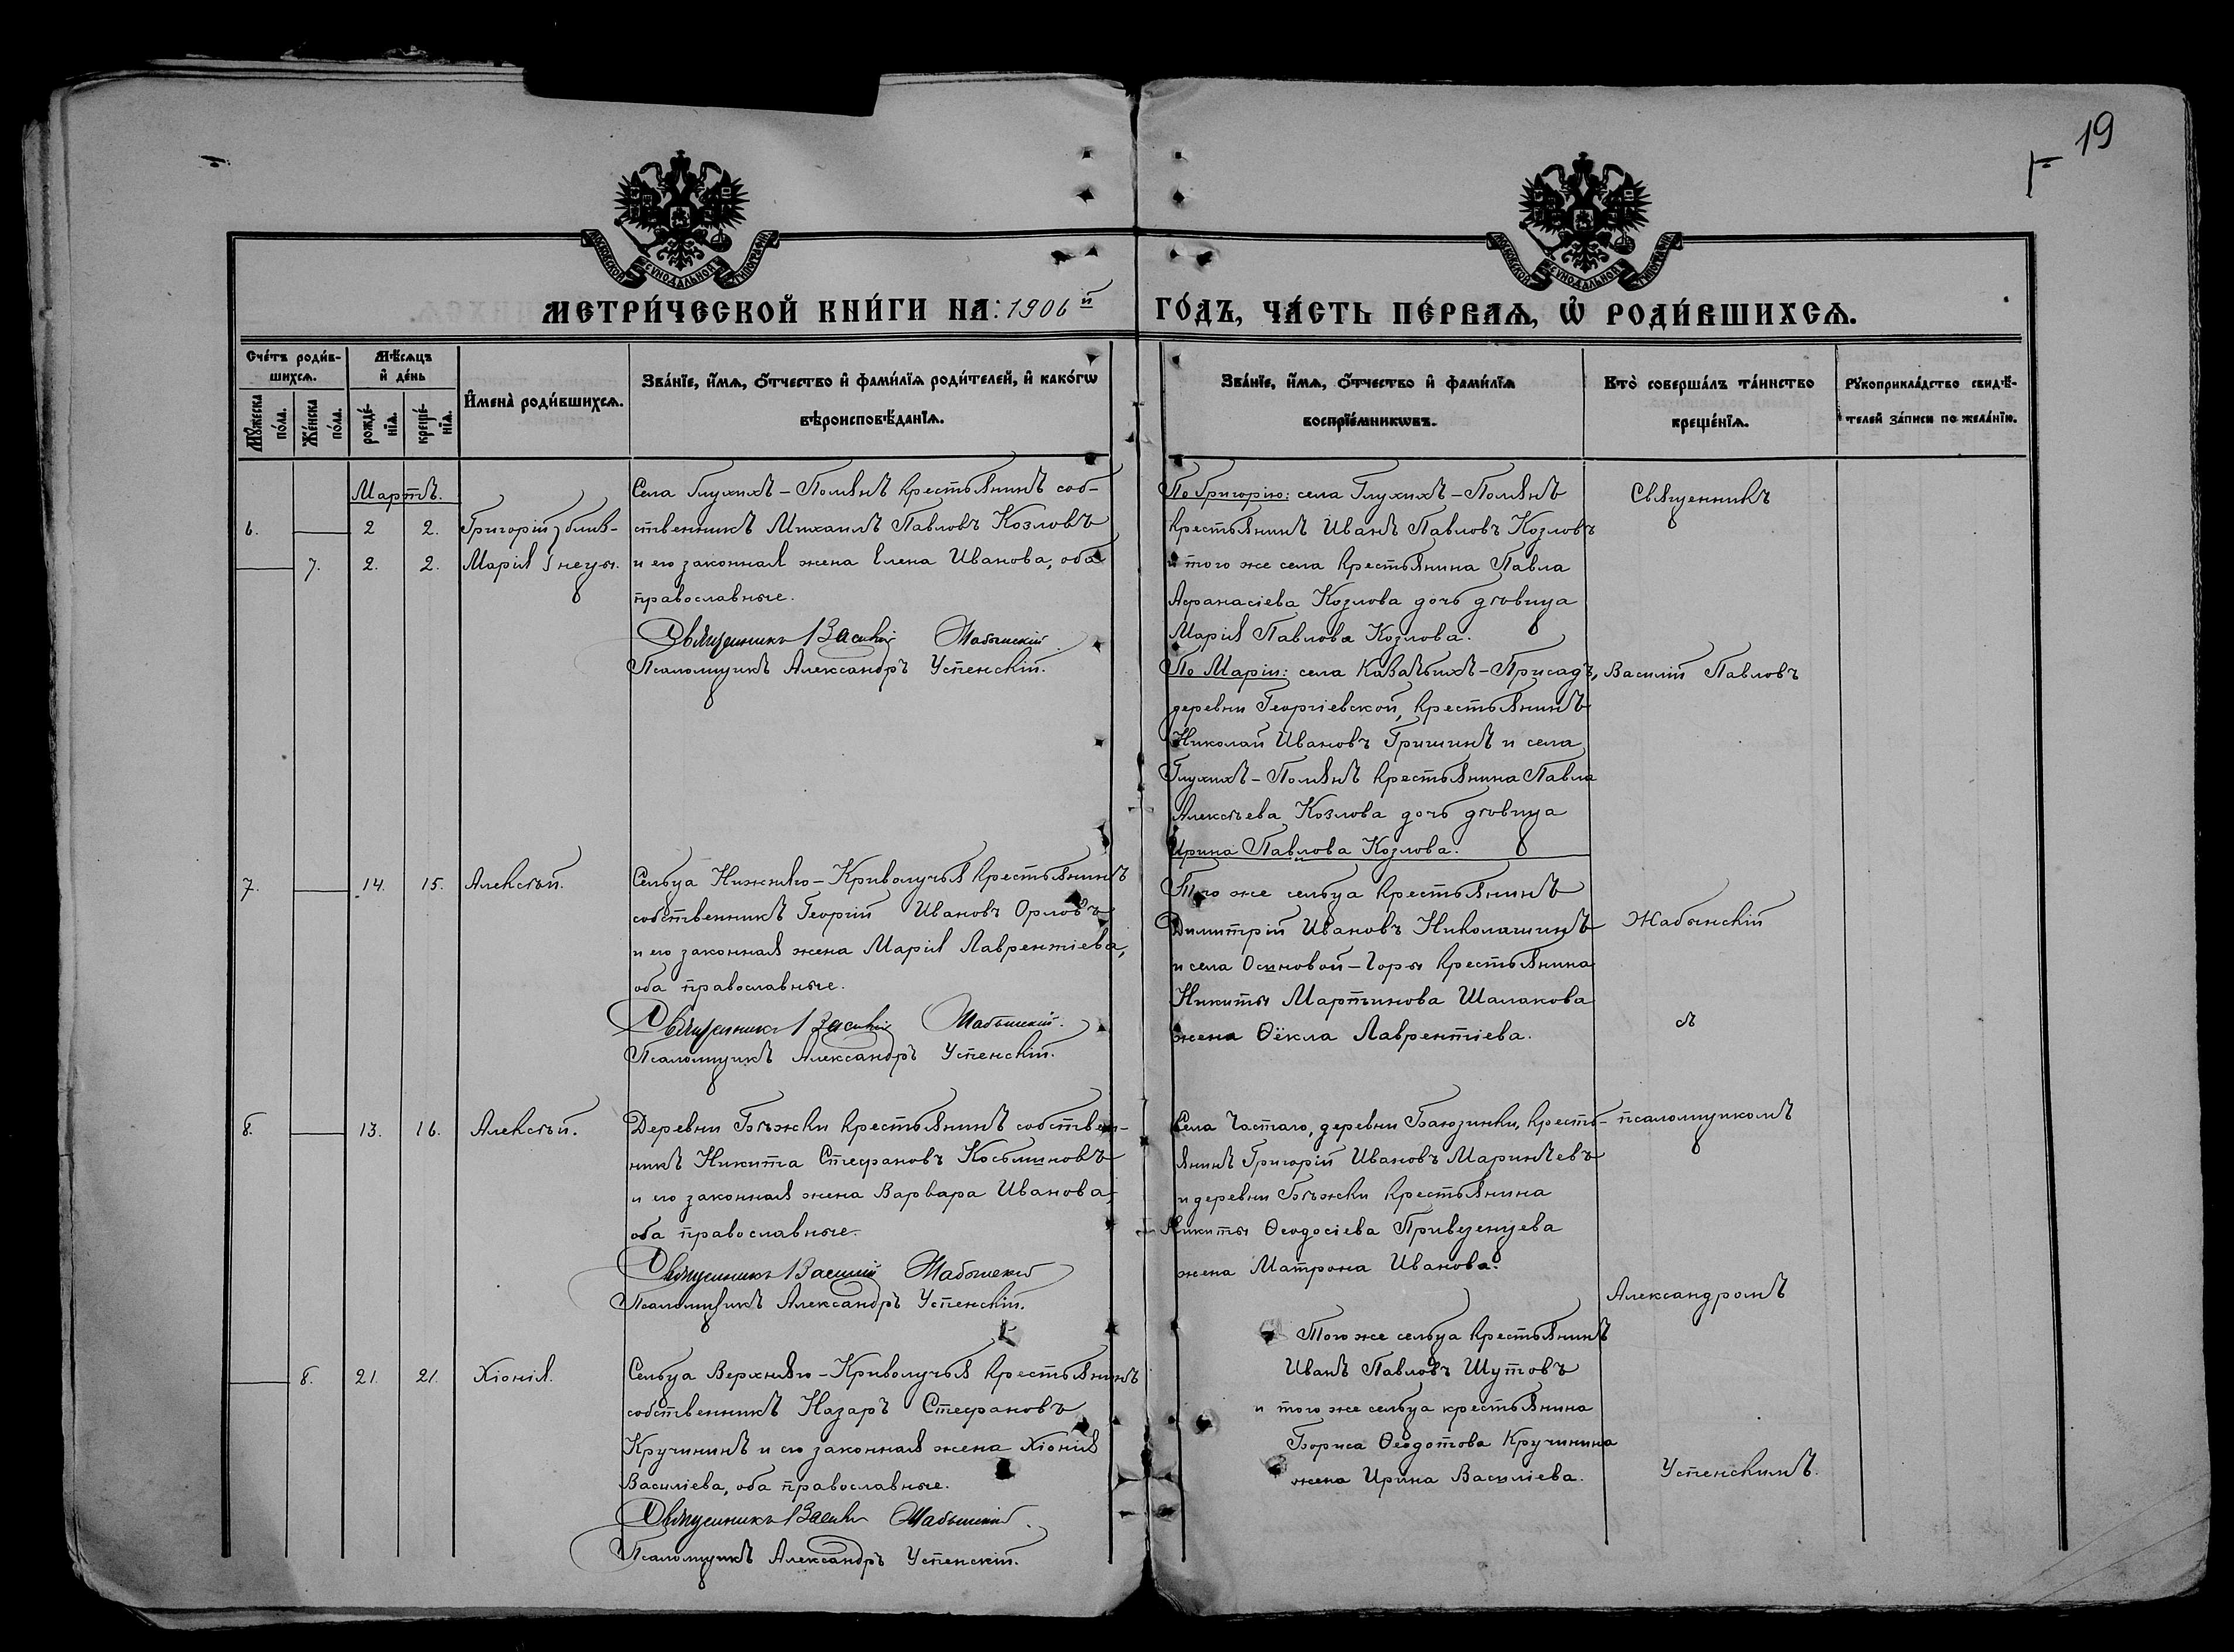 19
МОСКОВСКОЙ СѴНОДАЛЬНОЙ ТИПОГРАФІИ
МОСКОВСКОЙ СѴНОДАЛЬНОЙ ТИПОГРАФІИ
МЕТРИ́ЧЕСКОЙ КНИ́ГИ НА: 1906й ГО́ДЪ, ЧА́СТЬ ПЕ́РВАЯ, Ѡ РОДИ́ВШИХСЯ.
Сче́тъ роди́в-
шихся.
Мꙋ́жеска
по́ла.
Же́нска
по́ла.
Мѣ́сяцъ
и де́нь
рожде́-
нїя.
креще́-
нїя.
И́мена̀ роди́вшихся.
Зва́нїе, и́мя, о́тчество и фами́лїя роди́телей, и како́гѡ
вѣроисповѣ́данїя.
Зва́нїе, и́мя, о́тчество и фами́лїя
воспрїе́мникѡвъ.
Кто̀ соверша́лъ та́инство
креще́нїя.
Рꙋкоприкла́дство свидѣ́-
телей за́писи по жела́нїю.
Мартъ.
6. 2 2. Григорій близ-
7. 2. 2. Марія нецы.
Села Глухихъ-Полянъ крестьянинъ соб-
ственникъ Михаилъ Павловъ Козловъ
и его законная жена Елена Иванова, оба
православные.
Священникъ Василій Жабынскій.
Псаломщикъ Александръ Успенскій.
По Григорію: села Глухихъ-Полянъ
крестьянинъ Иванъ Павловъ Козловъ
и того же села крестьянина Павла
Афанасіева Козлова дочь дѣвица
Марія Павлова Козлова.
По Маріи: села -Присадъ,
деревни Георгіевской, крестьянинъ
Николай Ивановъ Гришинъ и села
Глухихъ-Полянъ крестьянина Павла
Алексѣева Козлова дочь дѣвица
Ирина Павлова Козлова.
Священникъ
Василій Павловъ
7. 14. 15. Алексѣй.
Сельца Нижняго-Криволучья крестьянинъ
собственникъ Георгій Ивановъ Орловъ
и его законная жена Марія Лаврентіева,
оба православные.
Священникъ Василій Жабынскій.
Псаломщикъ Александръ Успенскій.
Того же сельца крестьянинъ
Димитрій Ивановъ Николашинъ
и села Осиновой-Горы крестьянина
Никиты Мартынова Шалакова
жена Ѳёкла Лаврентіева.
Жабынскій
съ
8. 13. 16. Алексѣй.
Деревни Бѣжки крестьянинъ собствен-
никъ Никита Стефановъ Косьминовъ
и его законная жена Варвара Иванова,
оба православные.
Священникъ Василій Жабынскій
Псаломщикъ Александръ Успенскій.
Села Частаго, деревни крестъ-
янинъ Григорій Ивановъ
и деревни Бѣжки крестьянина
Никиты Ѳеодосіева Привезенцева
жена Матрона Иванова.
псаломщикомъ
Александромъ
8. 21. 21. Хіонія.
Сельца Верхняго-Криволучья крестьянинъ
собственникъ Назаръ Стефановъ
Кручининъ и его законная жена Хіонія
Василіева, оба православные.
Священникъ Василій Жабынскій.
Псаломщикъ Александръ Успенскій.
Того же сельца крестьянинъ
Иванъ Павловъ Шутовъ
и того же сельца крестьянина
Бориса Ѳеодотова Кручинина
жена Ирина Василіева.
Успенскимъ.